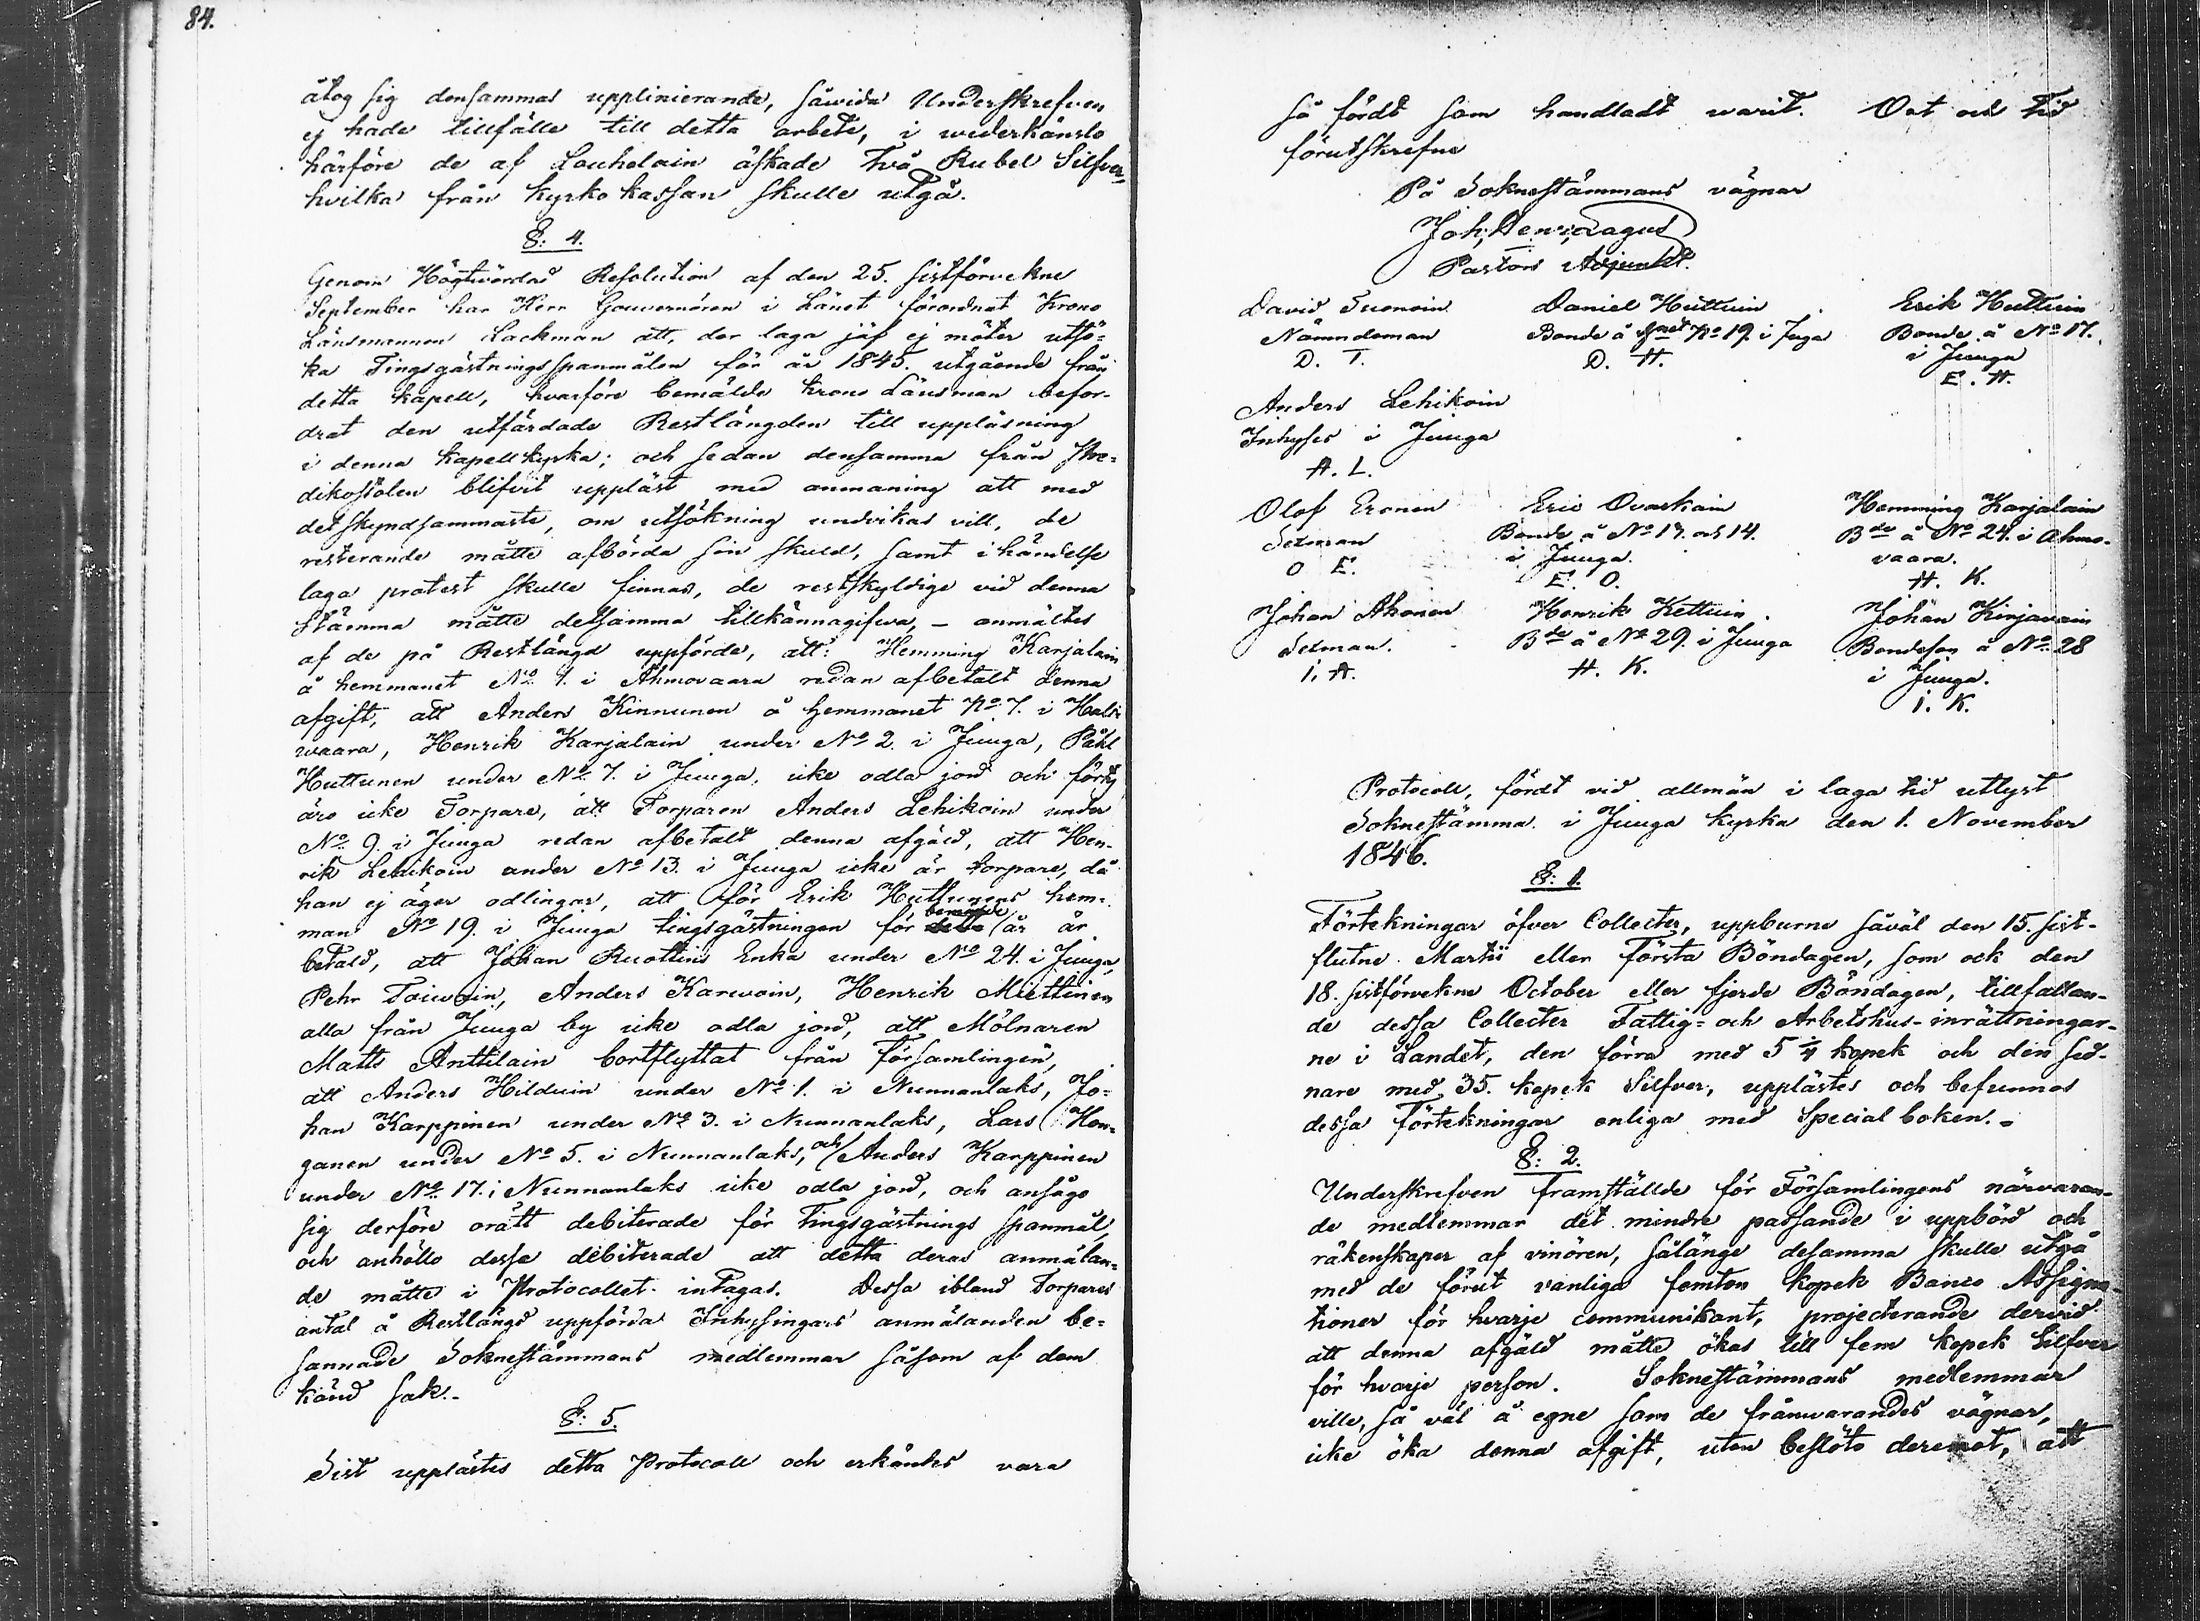 84.
åtog sig densammas upplinierande, såwida Underskrefven
ej hade tillfälle till detta arbete, i wederkänslo
härföre de af Louhelain äskade två Rubel Silfver,
hvilka från kyrko kassan skulle utgå.
§: 4.
Genom Högtvördad Resolution af den 25. sistförvekne
September har Herr Gouvernören i Länet förordnat Krono
Länsmannen Lackman att, der laga jäf ej möter utsö=
ka Tingsgästningsspanmålen för år 1845. utgående från
detta kapell, hvarföre bemälde krono Länsman befor-
drat den utfärdade Restlängden till uppläsning
i denna kapellkyrka; och sedan densamma från Pre=
dikostolen blifvit uppläst med anmaning att med
detskyndsammaste, om utsökning undvikas vill, de
resterande måtte afbörda sin skuld, samt i händelse
laga protest skulle finnas, de restskyldige vid denna
Stämma måtte detsamma tillkännagifwa, – anmältes
af de på Restlängd uppförde, att: Hemming Karjalain
å hemmanet No 1. i Ahmovaara redan afbetalt denna
afgift, att Anders Kinnunen å hemmanet No 7. i Hali
waara, Henrik Karjalain under No 2. i Juuga, Påhl
Huttunen under No 7. i Juuga, icke odla jord och förty
äro icke Torpare, att Torparen Anders Lehikoin under
No 9. i Juuga redan afbetalt denna afgäld, att Hen-
rik Lehikoin under No 13. i Juuga icke är torpare, då
han ej äger odlingar, att för Erik Huttunens hem-
man No 19. i Juuga tingsgästningen för bemälde år är
betald, att Johan Ruottins Enka under No 24. i Juuga,
Pehr Toiwoin, Anders Karwoin, Henrik Miettinen
alla från Juuga by icke odla jord, att Mölnaren
Matts Anttilain bortflyttat från församlingen,
att Anders Hilduin under No 1. i Nunnanlaks, Jo=
han Karppinen under No 3. i Nunnanlaks, Lars Kon=
ganen under No 5. i Nunnanlaks, och Anders Karppinen
under No 17. i Nunnanlaks icke odla jord, och ansågo
sig derföre orätt debiterade för Tingsgästnings spanmål,
och anhöllo dessa debiterade att detta deras anmälan=
de måtte i Protocollet intagas. Dessa ibland Torpares
antal å Restlängd uppförda Inhysingars anmälanden be=
sannade Soknestämmans medlemmar såsom af dem
känd sak.-
§: 5.
Sist upplästes detta Protocoll och erkändes vara
så fördt som handladt warit. Ort och tid
förutskrefne
På Soknestämmans vägnar
Joh: Henr: Lagus
Pastors Adjunkt.
David Tuonoin Daniel Huttuin Erik Huttuin
Nämndeman Bonde å No 19. i Juga Bonde å No 17.
D. T. D. H. i Juuga
E. H.
Anders Lehikoin
Inhyses i Juuga
A. L.
Olof Eronen Eric Ovaskain Hemming Karjalain
Sexman Bonde å No 13. och 14. Bde å No 24. i Ahmo-
O E. i Juuga. vaara.
E. O. H. K.
Johan Ahonen Henrik Kettuin Johan Kirjavain
Sexman. Bde å No 29. i Juuga Bondeson å No 28
I. A. H. K. i Juuga.
I. K.
Protocoll, fördt vid allmän i laga tid utlyst
Soknestämma i Juuga kyrka den 1. November
1846.
§: 1.
Förtekningar öfver Collecter, uppburne såväl den 15. sist-
flutne Martii eller Första Böndagen, som ock den
18. sistförvekne October eller fjerde Böndagen, tillfallan-
de dessa Collecter Fattig- och Arbetshus-inrättningar-
ne i Landet, den förra med 5 1/4 kopek och den sed-
nare med 35. kopek Silfver, upplästes och befunnos
dessa Förtekningar enliga med Special boken. –
§: 2.
Underskrefven framställde för Församlingens närvaran-
de medlemmar det mindre passande i uppbörd och
räkenskaper af vinören, sålänge desamma skulle utgå
med de förut vanliga femton kopek Banco Assigna-
tioner för hvarje communikant, projecterande dervid
att denna afgäld måtte ökas till fem kopek Silfver
för hvarje person. Soknestämmans medlemmar
ville, så väl å egne som de frånvarandes vägnar,
icke öka denna afgift, utan beslöto deremot, att